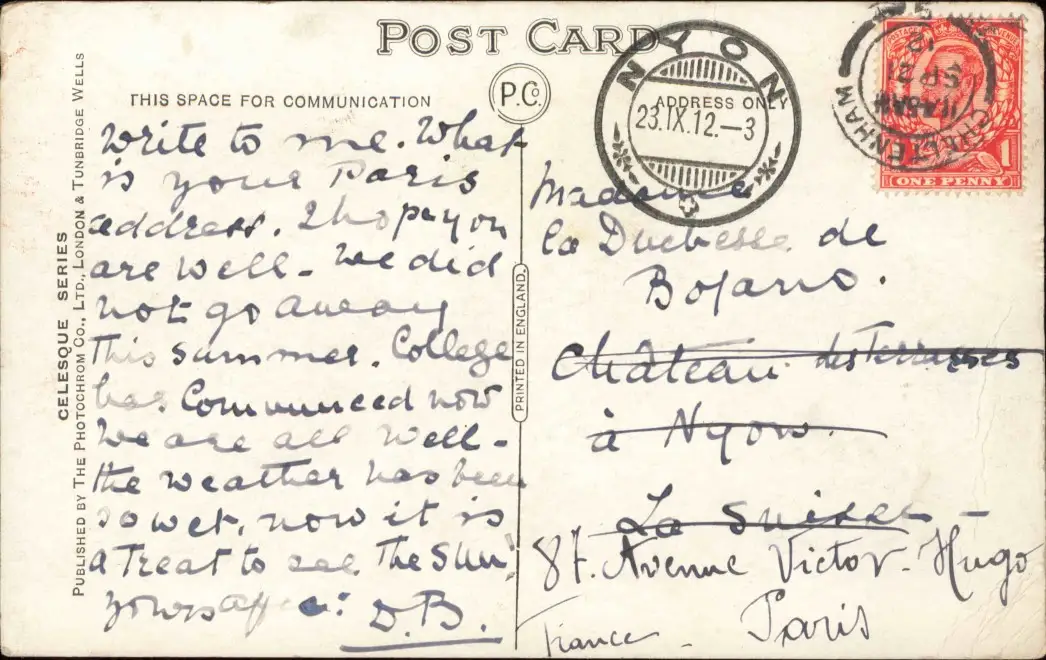 POST CARD
P.Co.
THIS SPACE FOR COMMUNICATION
ADDRESS ONLY
NYON
23.IX.12.–3
CHELTENHAM
11.45AM
SP 21
12
ONE PENNY
1
CELESQUE SERIES
PUBLISHED BY THE PHOTOCHROM CO., LTD., LONDON & TUNBRIDGE WELLS
PRINTED IN ENGLAND.
Write to me. What
is your Paris
address. I hope you
are well – We did
not go away
This summer. College
has Commenced now
We are all well –
the weather has been
so wet, now it is
a Treat to see The Sun!
yours affec:
D.B.
Madame
la Duchesse de
Bojano.
Château des Terrasses
à Nyon.
La Suisse –
87. Avenue Victor-Hugo
Paris
France –